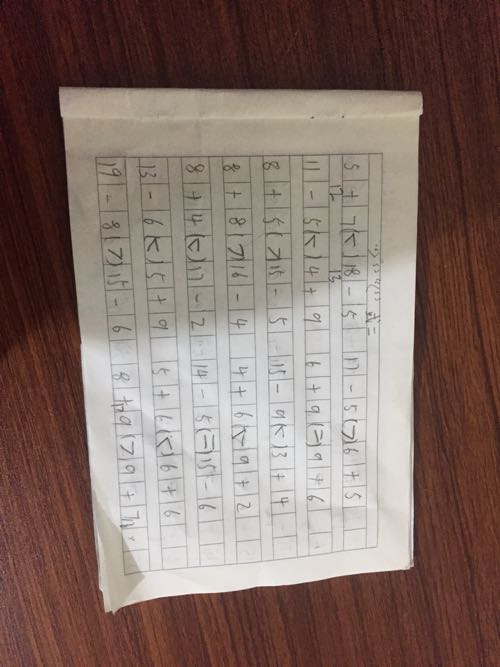 5 + 7(<)18 - 5 17 - 5(>)6 + 5
12 13
11 - 5(<)4 + 9 6 + 9(=)9 + 6
8 + 5(>)15 - 5 15 - 9(<)3 + 4
8 + 8(>)16 - 4 4 + 6(<)9 + 2
8 + 4(<)17 - 2 14 - 5(=)15 - 6
13 - 6(<)5 + 9 5 + 6(<)6 + 6
19 - 8(>)15 - 6 8 + 9(>)9 + 7